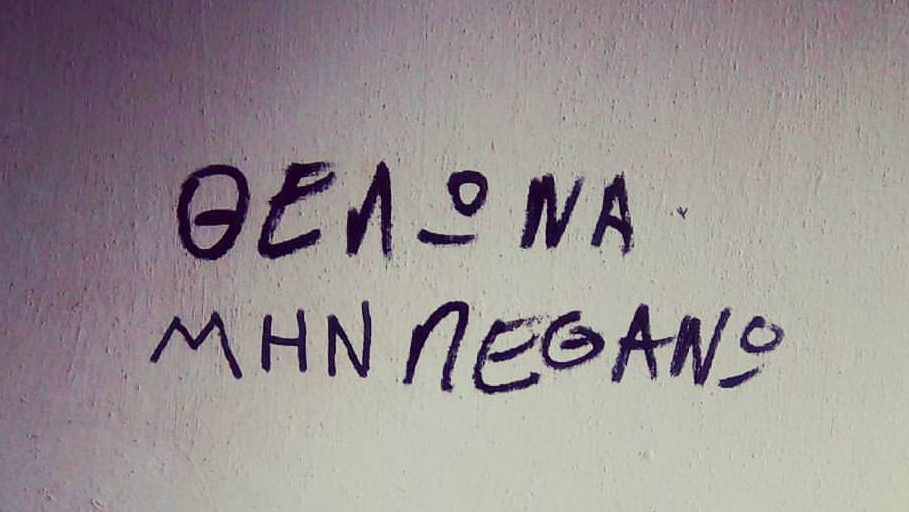 ΘΕΛΩ ΝΑ
ΜΗΝ ΠΕΘΑΝΩ